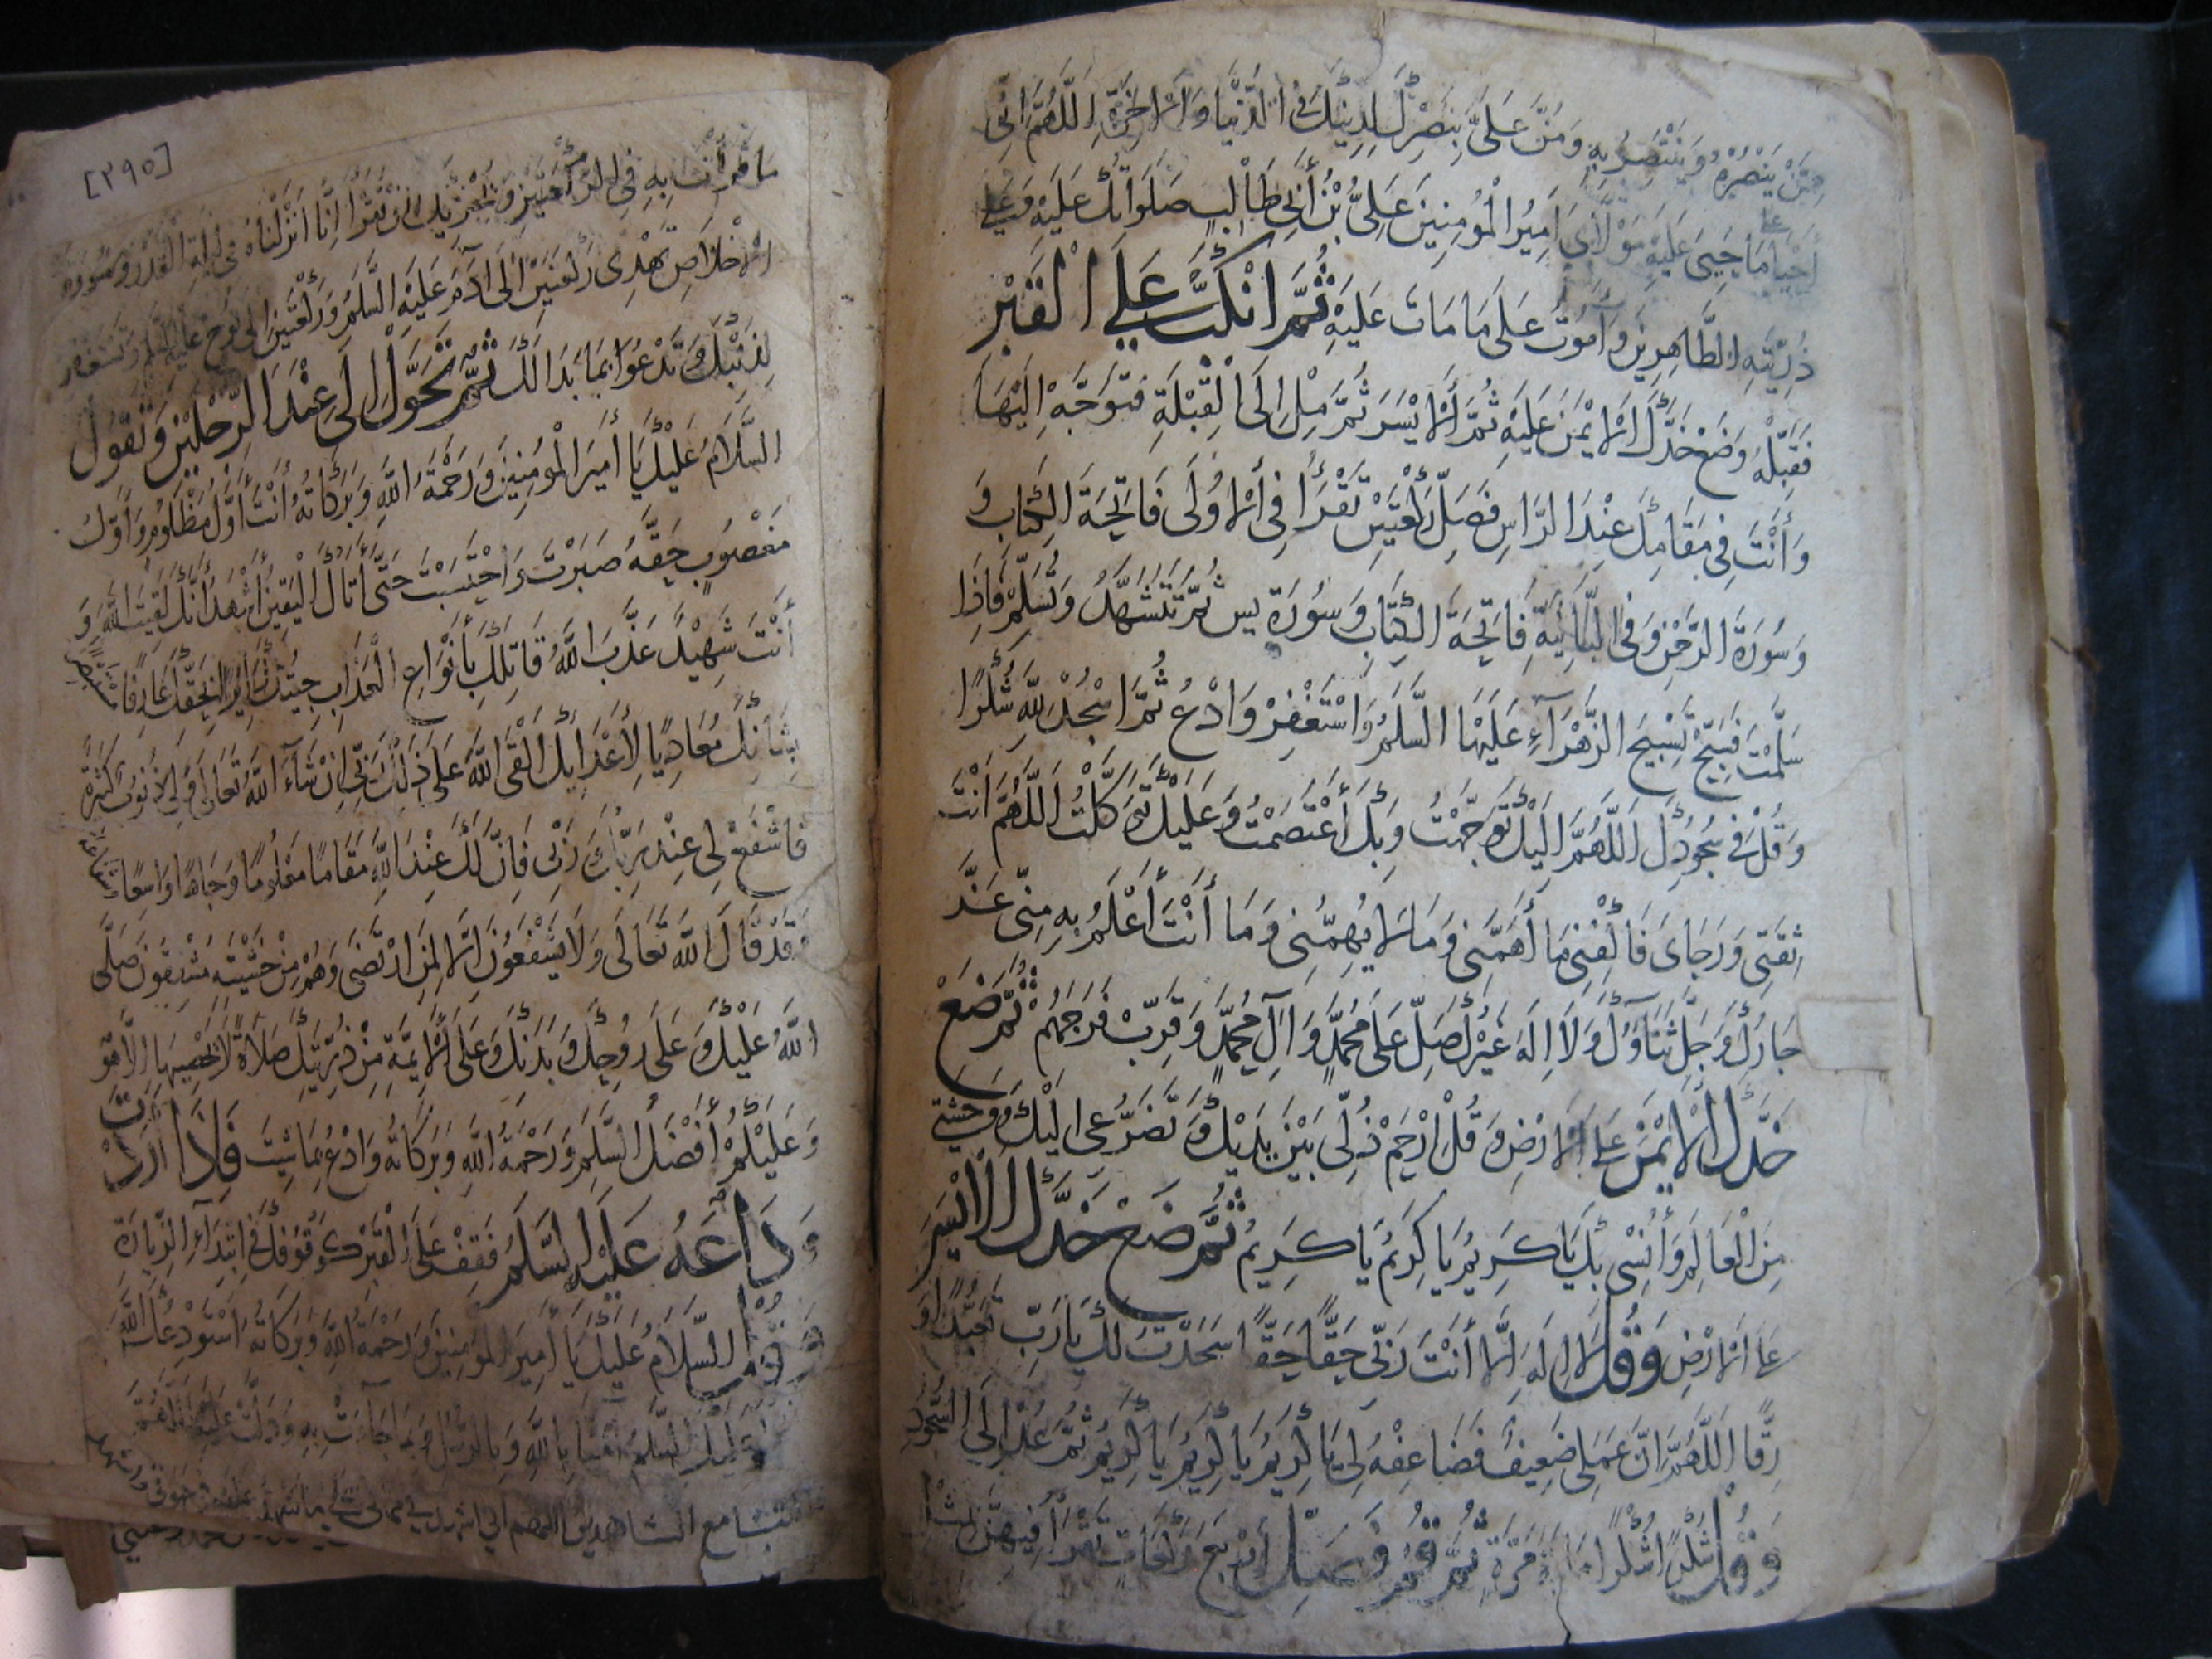 مِمَّنْ يَنْصُرُهُ وَيَنْتَصِرُ بِهِ وَمُنَّ عَلَيَّ بِنَصْرِكَ لِدِينِكَ فِي الدُّنْيَا وَالْآخِرَةِ اَللَّهُمَّ اِنِّي
أَحْيَا عَلَى مَا حَيِيَ عَلَيْهِ مَوْلَايَ اَمِيرُ الْمُؤْمِنِينَ عَلِيُّ بْنُ أَبِي طَالِبٍ صَلَوَاتُكَ عَلَيْهِ وَعَلَى
ذُرِّيَّتِهِ الطَّاهِرِينَ وَأَمُوتُ عَلَى مَا مَاتَ عَلَيْهِ ثُمَّ انْكَبَّ عَلَى الْقَبْرِ
فَقَبِّلْهُ وَضَعْ خَدَّكَ الْاَيْمَنَ عَلَيْهِ ثُمَّ الْاَيْسَرَ ثُمَّ مِلْ اِلَى الْقِبْلَةِ فَتَوَجَّهْ اِلَيْهَا
وَأَنْتَ فِي مَقَامِكَ عِنْدَ الرَّاسِ فَصَلِّ رَكْعَتَيْنِ تَقْرَأُ فِي الْأُولَى فَاتِحَةَ الْكِتَابِ وَ
وَسُورَةَ الرَّحْمٰنِ وَفِي الثَّانِيَةِ فَاتِحَةَ الْكِتَابِ وَسُورَةَ يس ثُمَّ تَتَشَهَّدُ وَتُسَلِّمُ فَاِذَا
سَلَّمْتَ فَسَبِّحْ تَسْبِيحَ الزَّهْرَآءِ عَلَيْهَا السَّلَمُ وَاسْتَغْفِرْ وَادْعُ ثُمَّ اسْجُدْ لِلَّهِ شُكْرًا
وَقُلْ فِي سُجُودِكَ اَللَّهُمَّ اِلَيْكَ تَوَجَّهْتُ وَبِكَ اَعْتَصَمْتُ وَعَلَيْكَ تَوَكَّلْتُ اَللَّهُمَّ اَنْتَ
ثِقَتِي وَرَجَاىَ فَاكْفِنِي مَا أَهَمَّنِي وَمَا لَا يُهِمُّنِي وَمَا أَنْتَ أَعْلَمُ بِهِ مِنِّي عَزَّ
جَارُكَ وَجَلَّ ثَنَاؤُكَ وَلَا اِلَهَ غَيْرُكَ صَلِّ عَلَى مُحَمَّدٍ وَآلِ مُحَمَّدٍ وَقَرِّبْ فَرَجَهُمْ ثُمَّ ضَعْ
خَدَّكَ الْاَيْمَنَ عَلَى الْاَرْضِ وَقُلْ اِرْحَمْ ذُلِّي بَيْنَ يَدَيْكَ وَتَضَرُّعِي اِلَيْكَ وَوَحْشَتِي
مِنَ الْعَالَمِ وَأُنْسِي بِكَ يَا كَرِيمُ يَا كَرِيمُ يَا كَرِيمُ ثُمَّ ضَعْ خَدَّكَ الْاَيْسَرَ
عَلَى الْاَرْضِ وَقُلْ لَا اِلَهَ اِلَّا أَنْتَ رَبِّي حَقًّا حَقًّا سَجَدْتُ لَكَ يَا رَبِّ تَعَبُّدًا وَ
رِقًّا اَللَّهُمَّ اِنَّ عَمَلِي ضَعِيفٌ فَضَاعِفْهُ لِي يَا كَرِيمُ يَا كَرِيمُ يَا كَرِيمُ ثُمَّ عُدْ اِلَى السُّجُودِ
وَقُلْ شُكْرًا شُكْرًا مِائَةَ مَرَّةٍ ثُمَّ قُمْ فَصَلِّ أَرْبَعَ رَكَعَاتٍ تَقْرَأُ فِيهِنَّ بِمِثْلِ
[٣٩٥]
مَا قَرَأْتَ بِهِ فِي الرَّكْعَتَيْنِ وَيُجْزِيكَ اَنْ تَقْرَأَ اِنَّا اَنْزَلْنَاهُ فِي لَيْلَةِ الْقَدْرِ وَسُورَةَ
الْاِخْلَاصِ تَهْدِى رَكْعَتَيْنِ اِلَى اٰدَمَ عَلَيْهِ السَّلَمُ وَرَكْعَتَيْنِ اِلَى نُوحٍ عَلَيْهِ السَّلَمُ وَتَسْتَغْفِرُ
لِذَنْبِكَ وَتَدْعُوا بِمَا بَدَا لَكَ ثُمَّ تَحَوَّلْ اِلَى عِنْدَ الرِّجْلَيْنِ وَتَقُولُ
السَّلَامُ عَلَيْكَ يَا أَمِيرَ الْمُؤْمِنِينَ وَرَحْمَةُ اللَّهِ وَبَرَكَاتُهُ أَنْتَ أَوَّلُ مَظْلُومٍ وَأَوَّلُ
مَغْصُوبٍ حَقَّهُ صَبَرْتَ وَاحْتَسَبْتَ حَتَّى أَتَاكَ الْيَقِينُ أَشْهَدُ أَنَّكَ لَقِيتَ اللَّهَ وَ
أَنْتَ شَهِيدٌ عَذَّبَ اللَّهُ قَاتِلَكَ بِأَنْوَاعِ الْعَذَابِ جِئْتُكَ زَائِرًا بِحَقِّكَ عَارِفًا مُسْتَبْصِرًا
بِشَأْنِكَ مُعَادِيًا لِأَعْدَائِكَ أَلْقَى اللَّهَ عَلَى ذَلِكَ رَبِّي اِنْ شَآءَ اللَّهُ تَعَالَى وَلِي ذُنُوبٌ كَثِيرَةٌ
فَاشْفَعْ لِي عِنْدَ رَبِّكَ رَبِّي فَاِنَّ لَكَ عِنْدَ اللَّهِ مَقَامًا مَعْلُومًا وَجَاهًا وَاسِعًا وَشَفَاعَةً
وَقَدْ قَالَ اللَّهُ تَعَالَى وَلَا يَشْفَعُونَ اِلَّا لِمَنِ ارْتَضَى وَهُمْ مِنْ خَشْيَتِهِ مُشْفِقُونَ صَلَّى
اللَّهُ عَلَيْكَ وَعَلَى رُوحِكَ وَبَدَنِكَ وَعَلَى الْأَئِمَّةِ مِنْ ذُرِّيَّتِكَ صَلَاةً لَا يُحْصِيهَا اِلَّا هُوَ
وَعَلَيْكُمْ أَفْضَلُ السَّلَمِ وَرَحْمَةُ اللَّهِ وَبَرَكَاتُهُ وَادْعُ بِمَا شِيتَ فَاِذَا اَرَدْتَ
وَدَاعَهُ عَلَيْهِ السَّلَمُ فَقِفْ عَلَى الْقَبْرِ كَوُقُوفِكَ فِي ابْتِدَآءِ الزِّيَارَةِ
وَقُلْ السَّلَامُ عَلَيْكَ يَا أَمِيرَ الْمُؤْمِنِينَ وَرَحْمَةُ اللَّهِ وَبَرَكَاتُهُ اَسْتَوْدِعُكَ اللَّهَ
عَلَيْكَ السَّلَمُ اٰمَنَّا بِاللَّهِ وَبِالرُّسُلِ وَبِمَا جَآءَتْ بِهِ وَدَلَّتْ عَلَيْهِ اَللَّهُمَّ
فَاكْتُبْنَا مَعَ الشَّاهِدِينَ اللَّهُمَّ اِنِّي اَشْهَدُ فِي مَمَاتِي عَلَى مَا شَهِدْتُ عَلَيْهِ فِي حَيٰوتِي